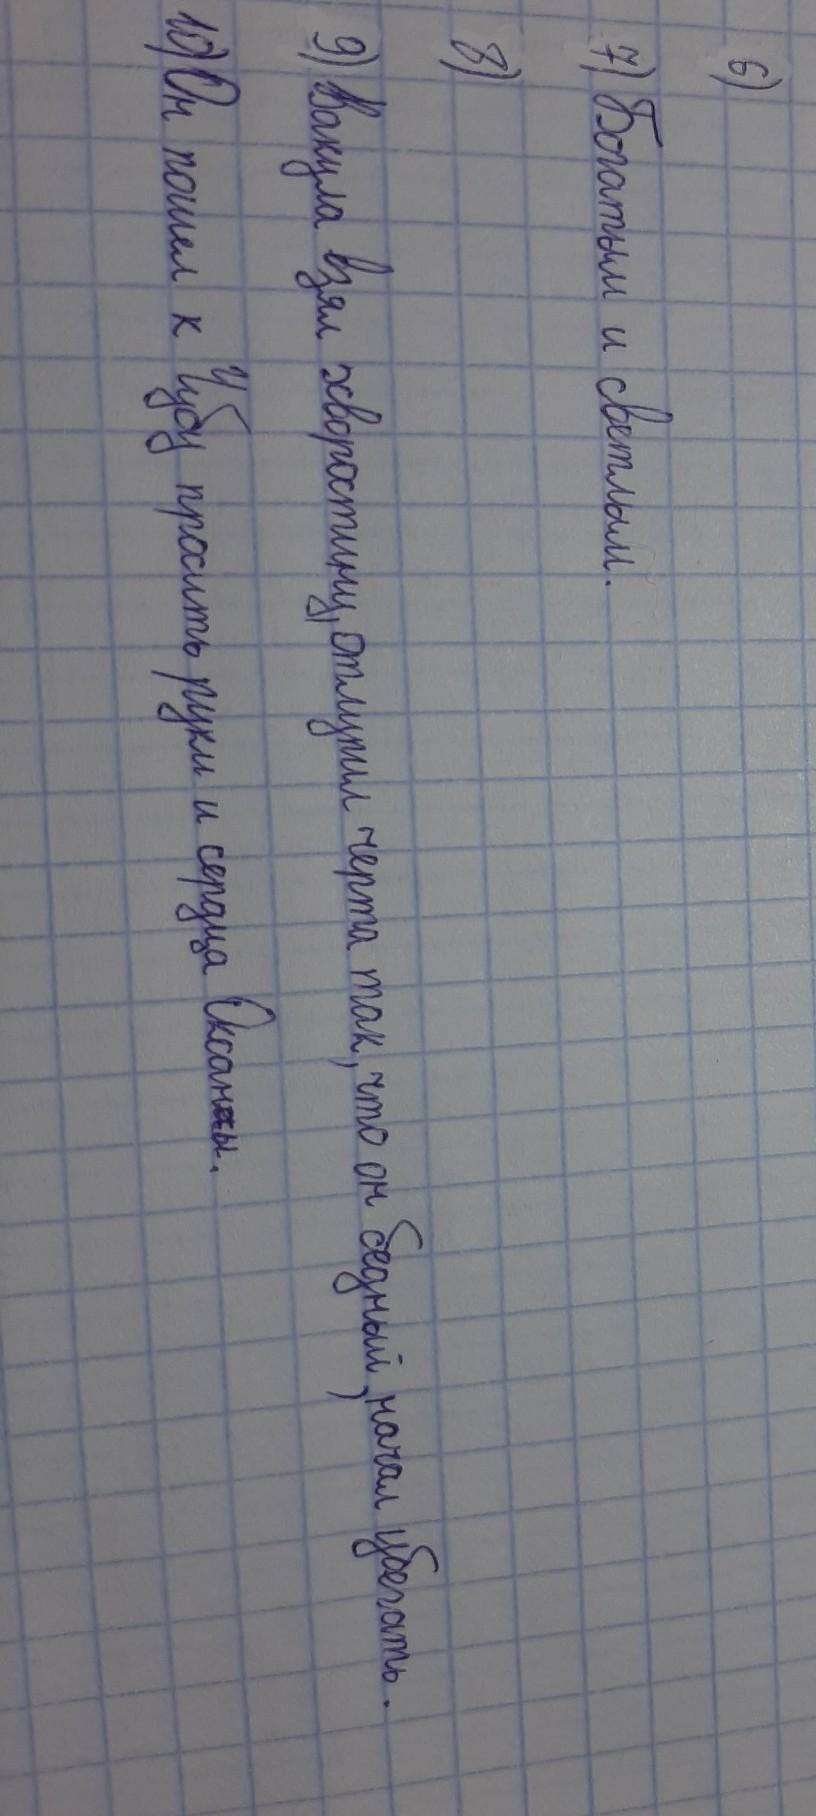 6)
7) Богатым и светлым.
8)
9) Вакула взял хворостину, отлупил черта так, что он бедный, начал убегать.
10) Он пошел к Чубу просить руки и сердца Оксаны.